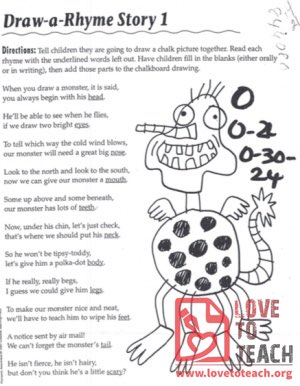 Draw-a-Rhyme Story 1
Directions: Tell children they are going to draw a chalk picture together. Read each
rhyme with the underlined words left out. Have children fill in the blanks (either orally
or in writing), then add those parts to the chalkboard drawing.
When you draw a monster, it is said,
you always begin with his head.
He'll be able to see when he flies,
if we draw two bright eyes.
To tell which way the cold wind blows,
our monster will need a great big nose.
Look to the north and look to the south,
now we can give our monster a mouth.
Some up above and some beneath,
our monster has lots of teeth.
Now, under his chin, let's just check,
that's where we should put his neck.
So he won't be tipsy-toddy,
let's give him a polka-dot body.
If he really, really begs,
I guess we could give him legs.
To make our monster nice and neat,
we'll have to teach him to wipe his feet.
A notice sent by air mail!
We can't forget the monster's tail.
He isn't fierce, he isn't hairy,
but don't you think he's a little scary?
0
0-21
0-30-
24
LOVE
TO
TEACH
www.lovetoteach.org